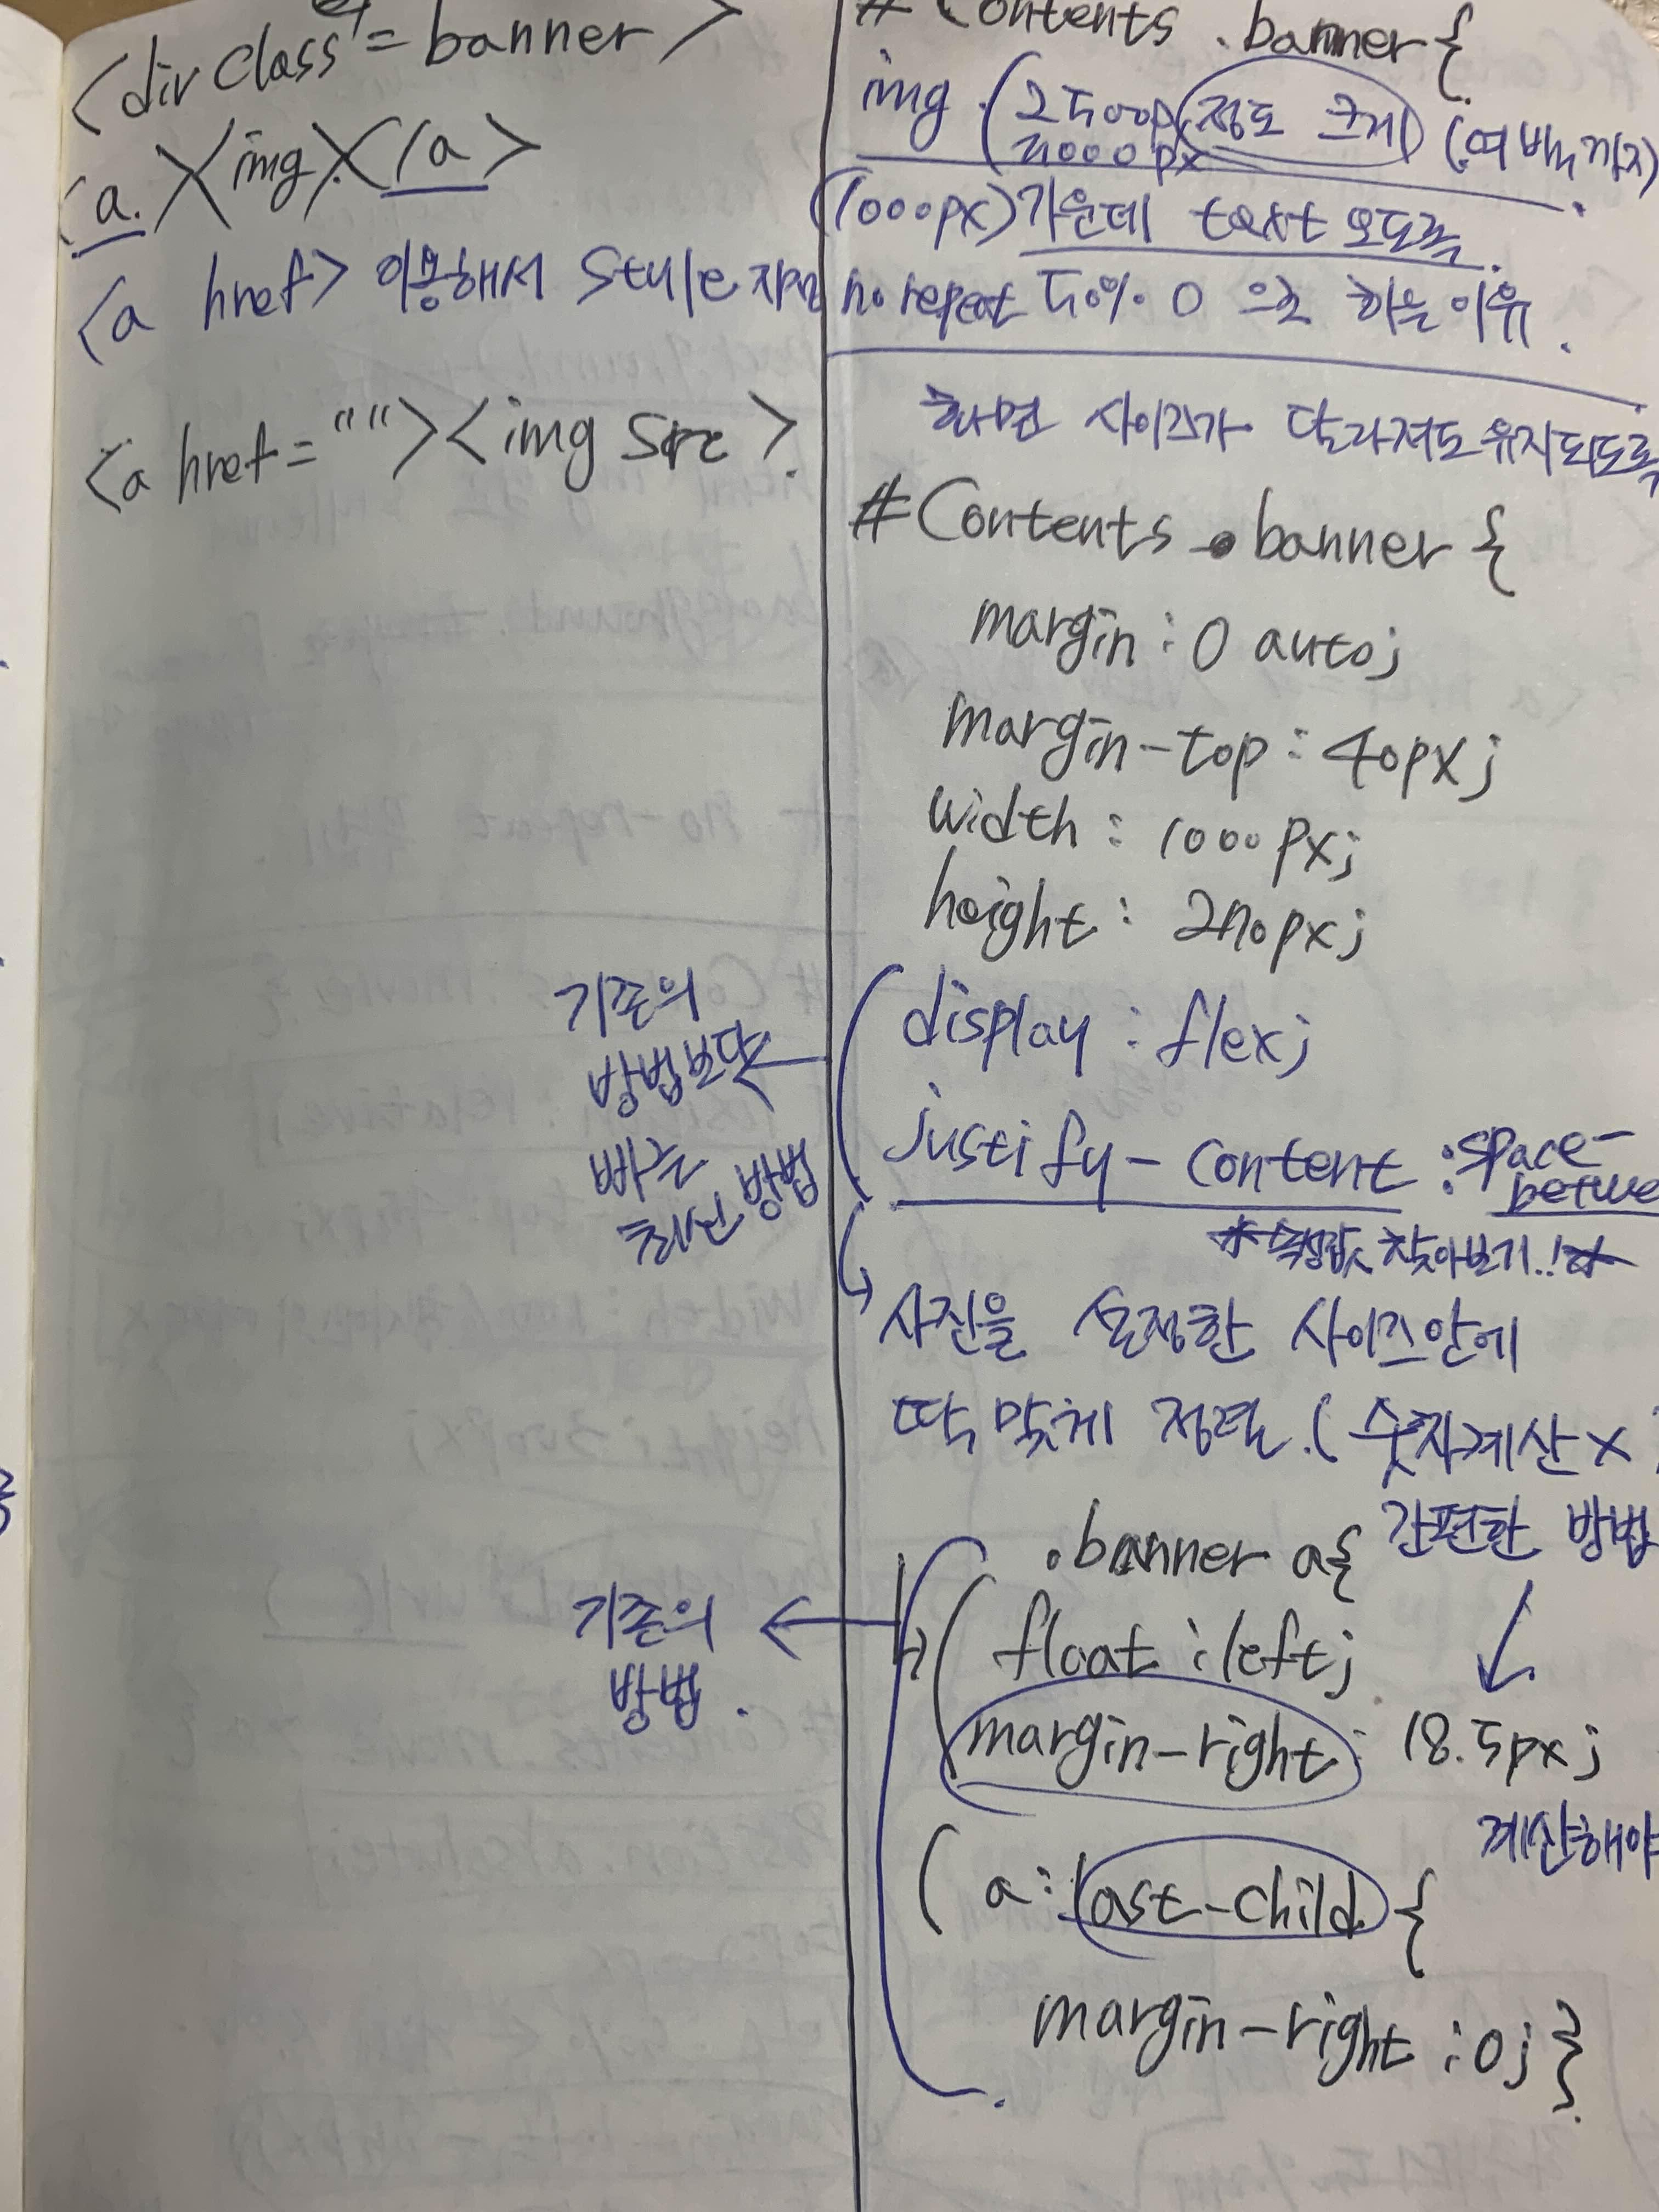 <div class = banner>
<a.><img><(a>
<a href> 이용해서 style 지정
<a href = ""><img src>.
기존의
방법보다
빠른
최신 방법
기존의
방법.
# Contents .banner {
img (2500px 정도 크게) (여백까지)
2000px
(1000px) 가운데 text 오도록.
no repeat 50% 0 으로 하는 이유.
화면 사이즈가 달라져도 유지되도록
# Contents .banner {
margin : 0 auto;
margin-top : 40px;
width : 1000px;
height : 270px;
display : flex;
justify-content : space-
betwe
* 속성값 찾아보기..! *
사진을 설정한 사이즈안에
딱 맞게 정렬. ( 숫자계산 x )
간편한 방법
.banner a{
float : left;
margin-right : 18.5px;
계산해야
( a : last-child {
margin-right : 0; }